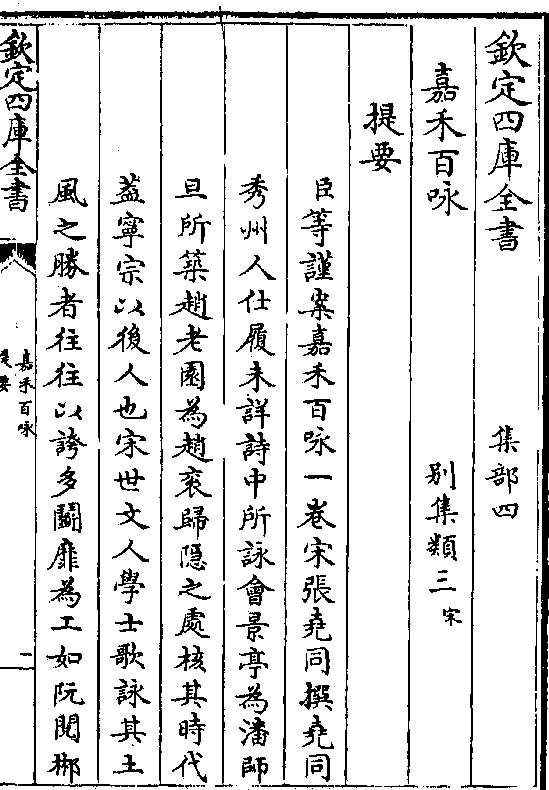 欽定四庫全書 集部四
嘉禾百咏 别集類三宋
提要
臣等謹案嘉禾百咏一卷宋張堯同撰堯同
秀州人仕履未詳詩中所詠會景亭為潘師
旦所築趙老園為趙衮歸隠之處核其時代
葢寧宗以後人也宋世文人學士歌詠其土
風之勝者往往以誇多鬭靡為工如阮閱郴
欽定四庫全書
嘉禾百咏
提要
一